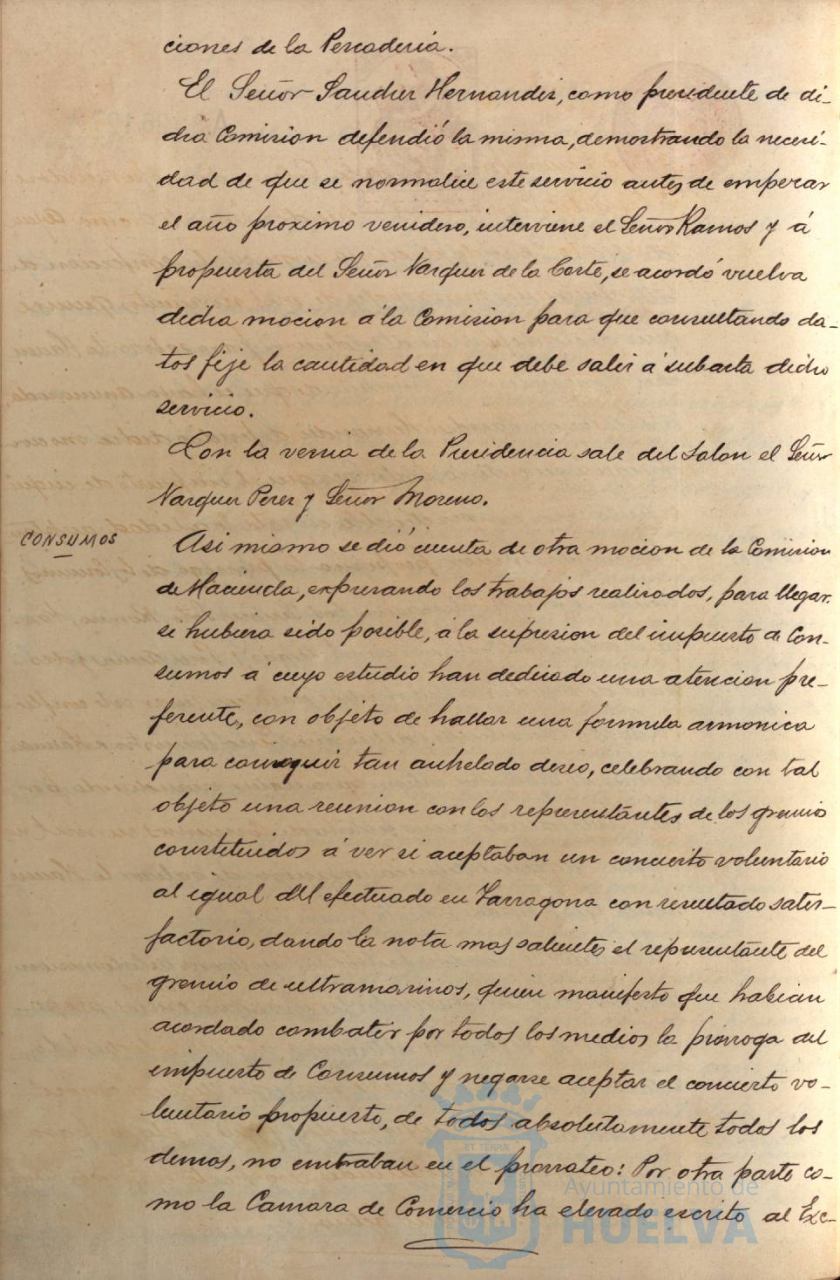 ciones de la Pescaderia.
El Señor Sanchez Hernandez, como presidente de di-
cha Comision defendió la misma, demostrando la necesi-
dad de que se normalice este servicio antes de empezar
el año proximo venidero, interviene el Señor Ramos y á
propuesta del Señor Vazquez de la Corte, se acordó vuelva
dicha mocion á la Comision para que consultando da-
tos fije la cantidad en que debe salir á subasta dicho
servicio.
Con la venia de la Presidencia sale del salon el Señor
Vazquez Perez y Señor Moreno.
CONSUMOS
Asi mismo se dió cuenta de otra mocion de la Comision
de Hacienda, expresando los trabajos realizados, para llegar
si hubiera sido posible, á la supresion del impuesto de Con-
sumos á cuyo estudio han dedicado una atencion pre-
ferente, con objeto de hallar una fórmula armonica
para conseguir tan anhelado deseo, celebrando con tal
objeto una reunion con los representantes de los gremio
constituidos á ver si aceptaban un concierto voluntario
al igual del efectuado en Tarragona con resultado satis-
factorio, dando la nota mas saliente, el representante del
gremio de ultramarinos, quien manifesto que habian
acordado combatir por todos los medios la prorroga del
impuesto de Consumos y negarse aceptar el concierto vo-
luntario propuesto, de todos absolutamente todos los
demas, no entraban en el prorrateo: Por otra parte co-
mo la Camara de Comercio ha elevado escrito al Exc-
Ayuntamiento de
HUELVA